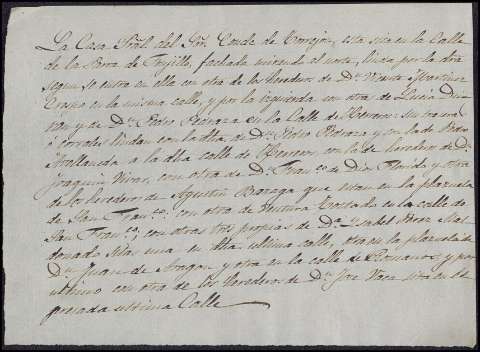 La Casa Pral. del Sor. Conde de Torrejon, esta sita en la Calle
de la Parra de Trujillo, fachada mirando al norte, linda por la dra.
segun se entra en ella con otra de los herederos de Dn. Vicente Martinez
Crespo en la misma calle, y por la izquierda con otras de Lucia
y de Dn. Pedro Pedraza en la Calle de Herreros: su trasera
ó corrales lindan con la dha. de Dn. Pedro Pedraza y con la de Pedro
Avellaneda a la dha calle de Herreros, con la de herederos de Dn.
Joaquin Vivar, con otra de Dn. Franco. de Dios Florido y otra
de los herederos de Agustin Barzaga que estan en la plazuela
de San Franco., con otra de Ventura Tostado en la calle de
San Franco.; con otras tres propias de Da. Ysabel Perez Mal
donado sitas una en dha ultima calle, otra en la plazuela de
Dn. Juan de Aragon y otra en la calle de Romanos; y por
ultimo con otra de los herederos de Dn. Jose Vaca sita en la es
presada ultima Calle